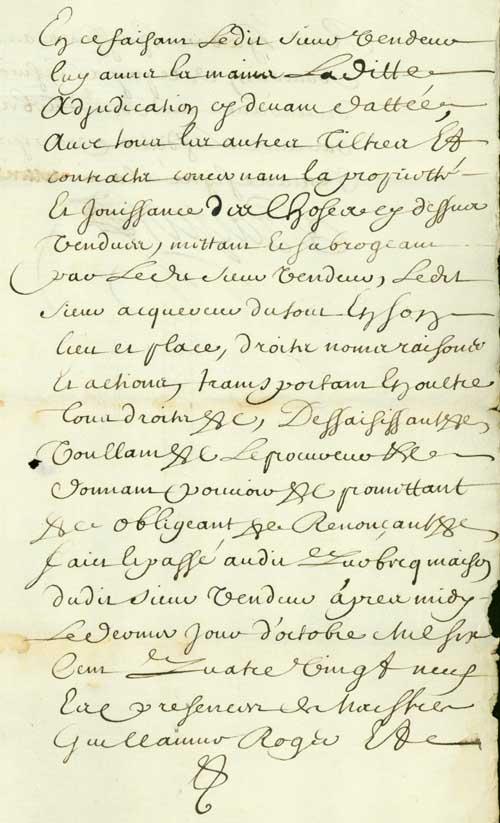 En ce faisant Ledit sieur Vendeur
luy a mis la mains Laditte
Adjudication cy devant dattée
Avec tous les autres Tiltres Et
contracts concernant la proprietté
Et Jouissance des Choses cy dessus
Vendues, mettant et subrogeant
par Ledit sieur Vendeur, Ledit
sieur acquereur du tout En son
lieu et place, droits noms raisons
Et actions, transportant En oultre
tous droits &c, Dessaisissant &c
Voullant &c Le procureur &c
donnant pouvoir &c promettant
&c obligeant &c Renonçant &c
faict et passé audit maison
dudit sieur Vendeur apres midy
Le dernier Jour d'octobre Mil six
Cent Quatre Vingt neuf
Es presences de Maistre
Guillaume Roger Et